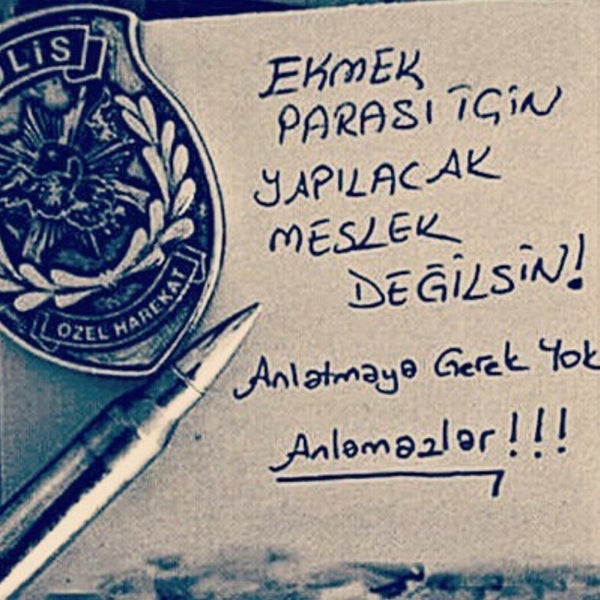 LİS
ÖZEL HAREKAT
EKMEK
PARASI İÇİN
YAPILACAK
MESLEK
DEĞİLSİN!
Anlatmaya Gerek Yok
Anlamazlar!!!